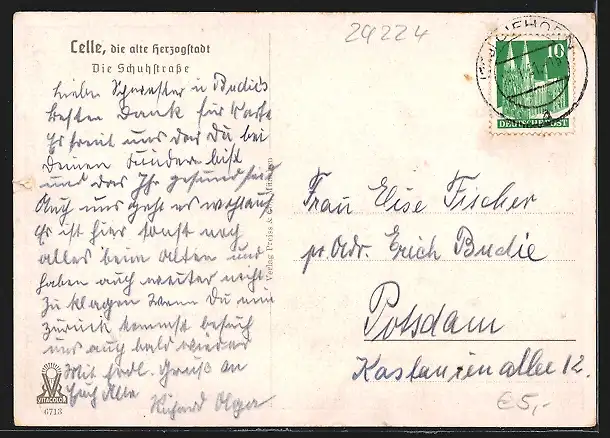 24224
Celle, die alte Herzogstadt
Die Schuhstraße
Liebe Schwester u Budie's
besten Dank für Karte
Es freut uns das Du bei
Deinen Kinder bist
und das Ihr gesund seid
Auch uns geht es wohlauf
Es ist hier sonst noch
alles beim alten und
haben auch weiter nicht
zu klagen Wenn Du nun
zurück kommst besuch
uns auch bald wieder
Mit frdl. Gruß an
Euch Alle
Richard Olga
VITACOLOR
6713
Verlag Preiss & Co. München
GIFHORN
10
DEUTSCHE POST
Frau Elise Fischer
pr. Adr. Erich Budie
Potsdam
Kastanienallee 12.
€5,-